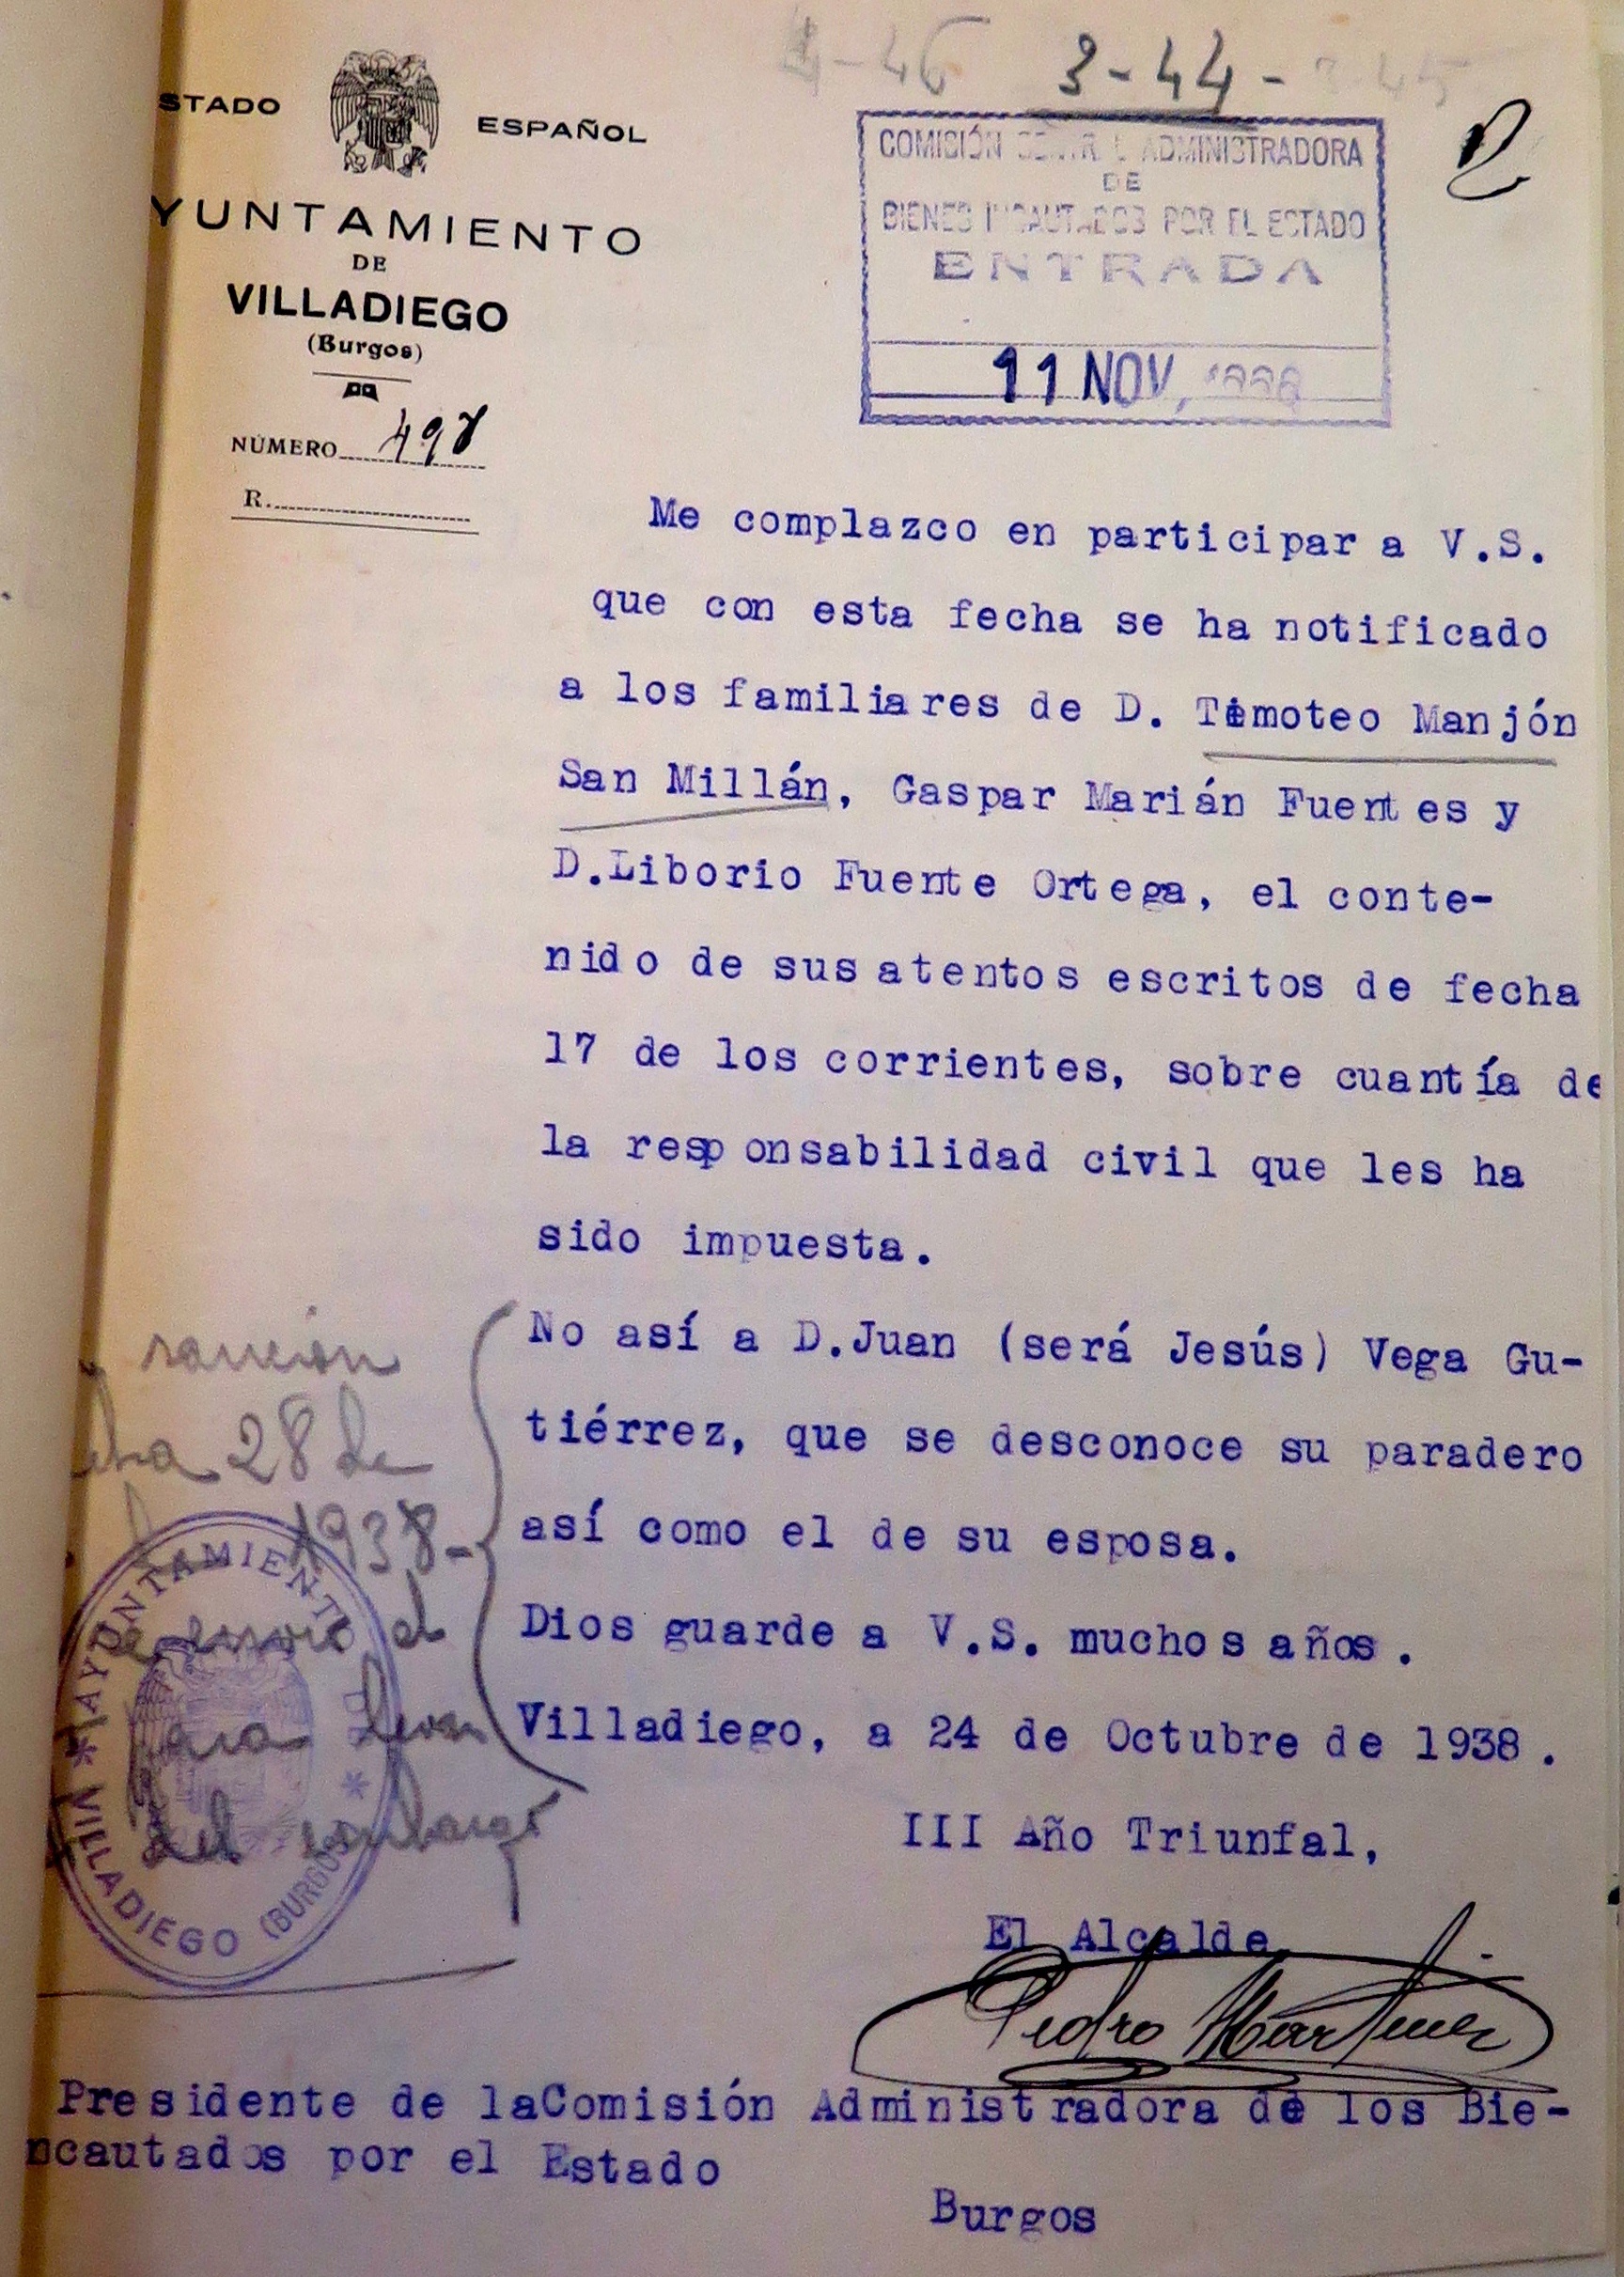 4-46 3-44- 3-45
STADO ESPAÑOL
YUNTAMIENTO
DE
VILLADIEGO
(Burgos)
NÚMERO 498
R.
COMISIÓN CENTRAL ADMINISTRADORA
DE
BIENES INCAUTADOS POR EL ESTADO
ENTRADA
11 NOV, 1938
Me complazco en participar a V.S.
que con esta fecha se ha notificado
a los familiares de D. Timoteo Manjón
San Millán, Gaspar Marián Fuentes y
D.Liborio Fuente Ortega, el conte-
nido de sus atentos escritos de fecha
17 de los corrientes, sobre cuantía de
la responsabilidad civil que les ha
sido impuesta.
No así a D.Juan (será Jesús) Vega Gu-
tiérrez, que se desconoce su paradero
así como el de su esposa.
Dios guarde a V.S. muchos años.
Villadiego, a 24 de Octubre de 1938.
III Año Triunfal,
El Alcalde,
Pedro Martínez
sanción
28 de
1938-
el
para levan
del embargo
* AYUNTAMIENTO DE *
VILLADIEGO (BURGOS)
Presidente de laComisión Administradora de los Bie-
ncautados por el Estado
Burgos